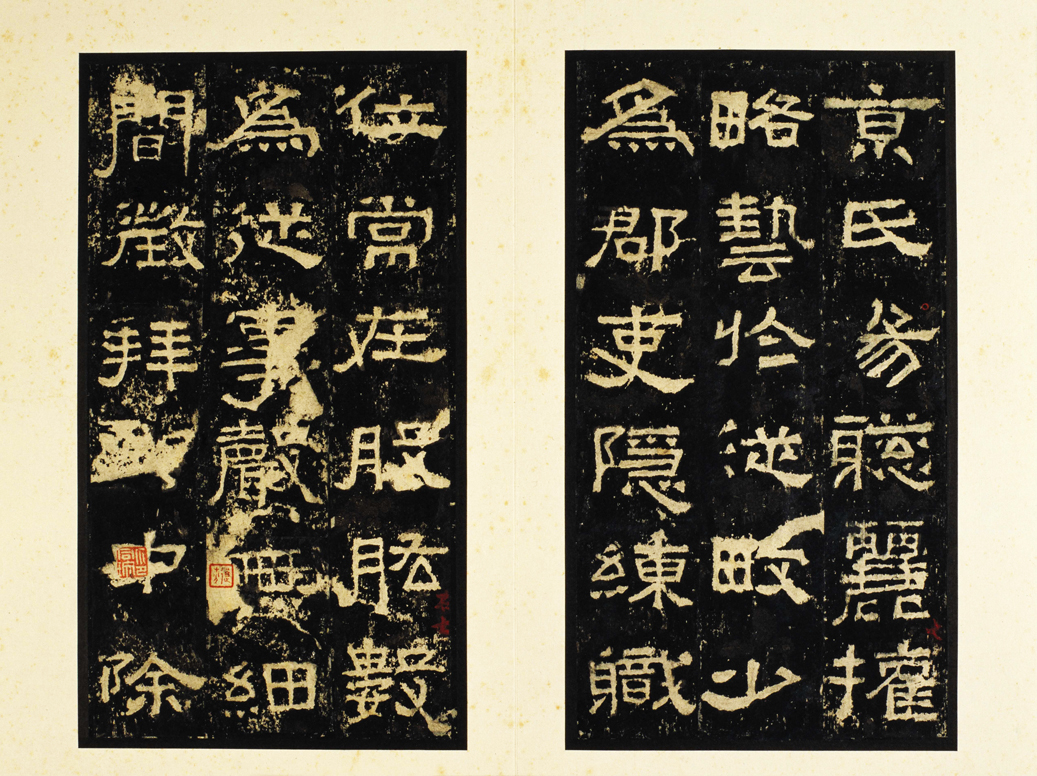 京氏易聰麗權
略藝於從畋少
為郡吏隱練職
位常在股肱數
為從事聲無細
間徵拜中除